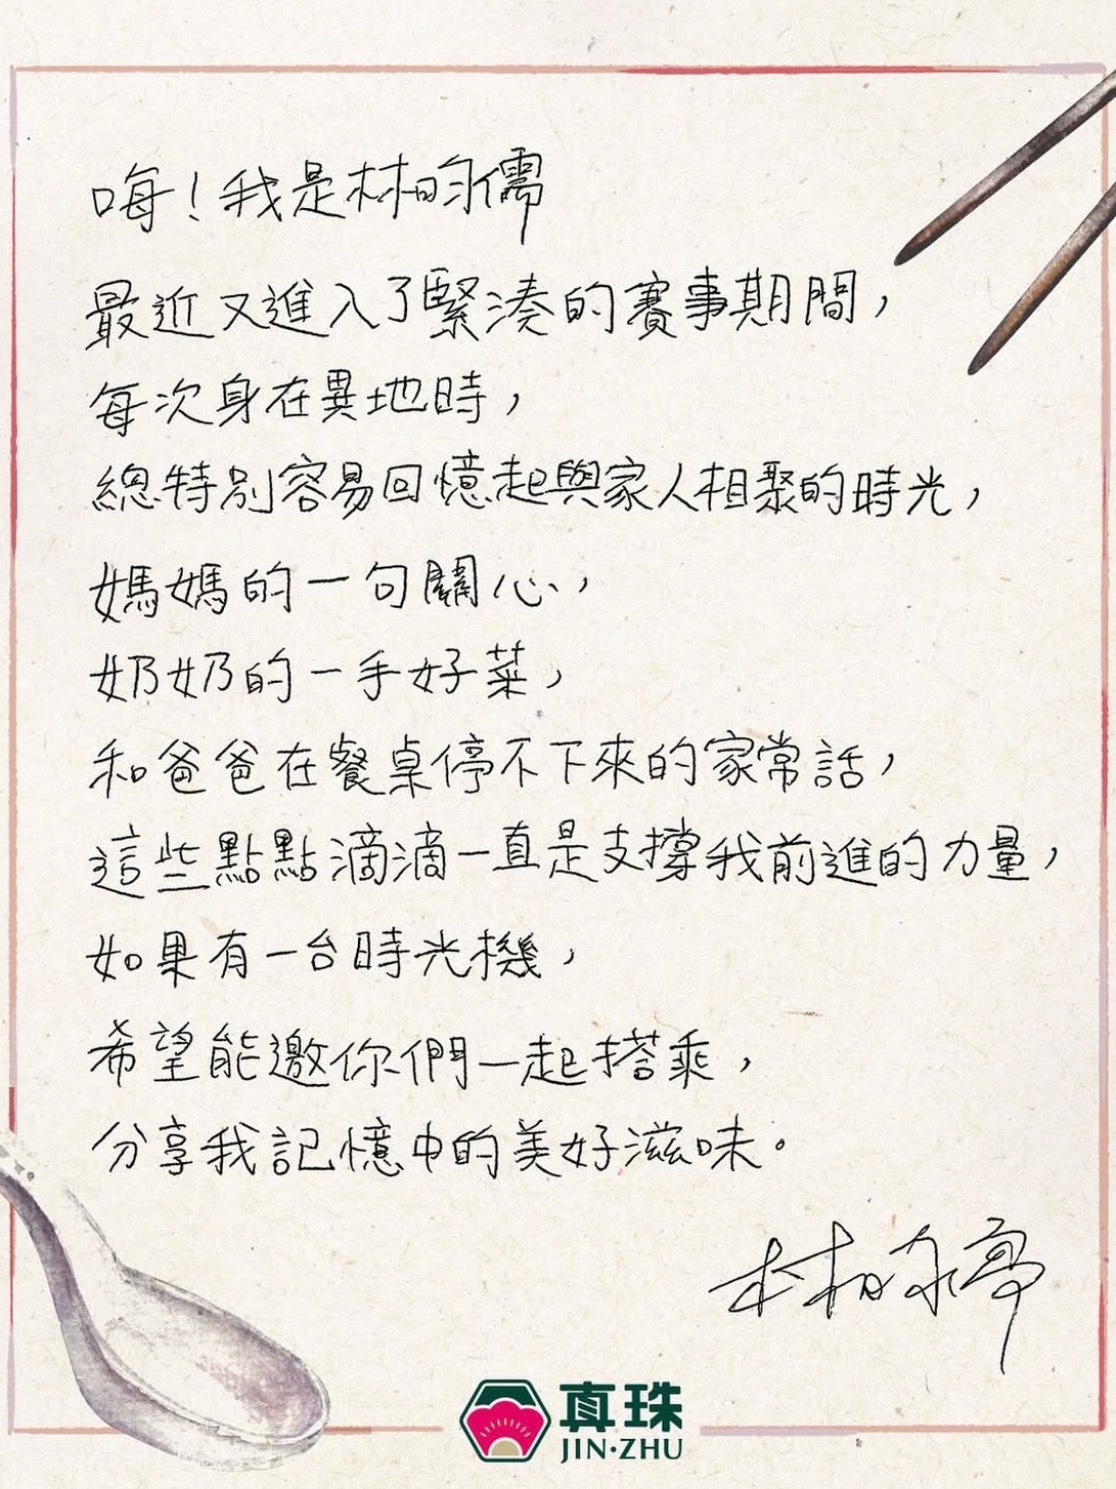 嗨！我是林昀儒
最近又進入了緊湊的賽事期間，
每次身在異地時，
總特別容易回憶起與家人相聚的時光，
媽媽的一句關心，
奶奶的一手好菜，
和爸爸在餐桌停不下來的家常話，
這些點點滴滴一直是支撐我前進的力量，
如果有一台時光機，
希望能邀你們一起搭乘，
分享我記憶中的美好滋味。
林昀儒
真珠
JIN·ZHU